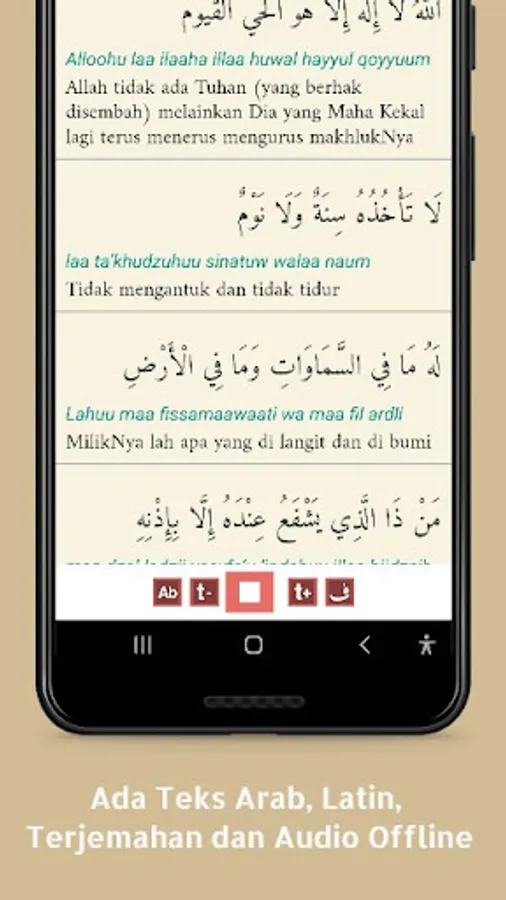 اللَّهُ لَا إِلَٰهَ إِلَّا هُوَ الْحَيُّ الْقَيُّومُ
Alloohu laa ilaaha illaa huwal hayyul qoyyuum
Allah tidak ada Tuhan (yang berhak
disembah) melainkan Dia yang Maha Kekal
lagi terus menerus mengurus makhlukNya
لَا تَأْخُذُهُ سِنَةٌ وَلَا نَوْمٌ
laa ta'khudzuhuu sinatuw walaa naum
Tidak mengantuk dan tidak tidur
لَهُ مَا فِي السَّمَاوَاتِ وَمَا فِي الْأَرْضِ
Lahuu maa fissamaawaati wa maa fil ardli
MilikNya lah apa yang di langit dan di bumi
مَنْ ذَا الَّذِي يَشْفَعُ عِنْدَهُ إِلَّا بِإِذْنِهِ
Ab t- t+ ف
Ada Teks Arab, Latin,
Terjemahan dan Audio Offline